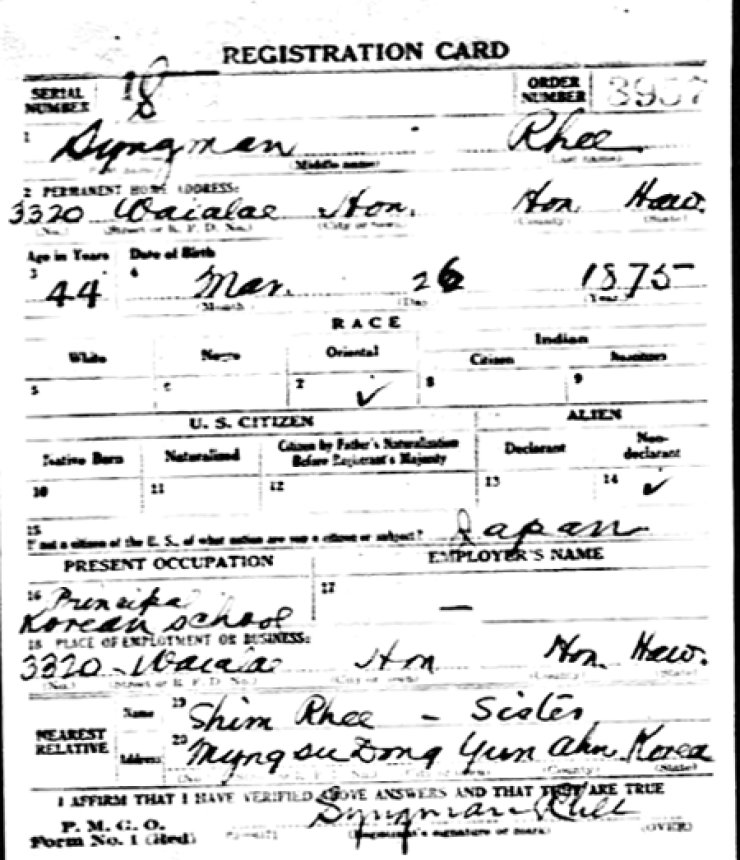 REGISTRATION CARD
SERIAL NUMBER 18 ORDER NUMBER 3957
1 Syngman Rhee
(Middle name) (Last name)
2 PERMANENT HOME ADDRESS:
3320 Waialae Hon. Hon Haw.
(No.) (Street or R. F. D. No.) (City or town) (County) (State)
Age in Years Date of Birth
3 44 4 Mar. 26 1875
(Month) (Day) (Year)
RACE
White Negro Oriental Indian
Citizen
5 6 7 ✓ 8 9
U. S. CITIZEN ALIEN
Native Born Naturalized Citizen by Father's Naturalization Before Registrant's Majority Declarant Non-declarant
10 11 12 13 14 ✓
15 If not a citizen of the U. S., of what nation are you a citizen or subject? Japan
PRESENT OCCUPATION EMPLOYER'S NAME
16 Principal 17 —
Korean school
18 PLACE OF EMPLOYMENT OR BUSINESS:
3320 Waialae Hon Hon. Haw.
(No.) (Street or R. F. D. No.) (City or town) (County) (State)
NEAREST RELATIVE
Name 19 Shim Rhee - Sister
Address 20 Myng Su Dong Yun Ahn Korea
(No.) (City or town) (County) (State)
I AFFIRM THAT I HAVE VERIFIED ABOVE ANSWERS AND THAT THEY ARE TRUE
Syngman Rhee
P. M. G. O.
Form No. 1 (Red) (Registrant's signature or mark) (OVER)